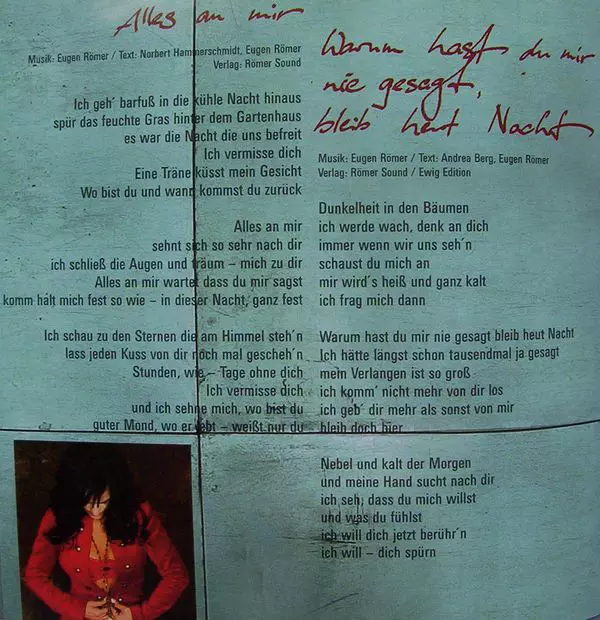 Alles an mir
Musik: Eugen Römer / Text: Norbert Hammerschmidt, Eugen Römer
Verlag: Römer Sound
Ich geh' barfuß in die kühle Nacht hinaus
spür das feuchte Gras hinter dem Gartenhaus
es war die Nacht die uns befreit
Ich vermisse dich
Eine Träne küsst mein Gesicht
Wo bist du und wann kommst du zurück
Alles an mir
sehnt sich so sehr nach dir
ich schließ die Augen und träum – mich zu dir
Alles an mir wartet dass du mir sagst
komm halt mich fest so wie – in dieser Nacht, ganz fest
Ich schau zu den Sternen die am Himmel steh'n
lass jeden Kuss von dir noch mal gescheh'n
Stunden, wie – Tage ohne dich
Ich vermisse dich
und ich sehne mich, wo bist du
guter Mond, wo er lebt – weißt nur du
Warum hast du mir
nie gesagt,
bleib heut Nacht
Musik: Eugen Römer / Text: Andrea Berg, Eugen Römer
Verlag: Römer Sound / Ewig Edition
Dunkelheit in den Bäumen
ich werde wach, denk an dich
immer wenn wir uns seh'n
schaust du mich an
mir wird's heiß und ganz kalt
ich frag mich dann
Warum hast du mir nie gesagt bleib heut Nacht
Ich hätte längst schon tausendmal ja gesagt
mein Verlangen ist so groß
ich komm' nicht mehr von dir los
ich geb' dir mehr als sonst von mir
bleib doch hier
Nebel und kalt der Morgen
und meine Hand sucht nach dir
ich seh, dass du mich willst
und was du fühlst
ich will dich jetzt berühr'n
ich will – dich spürn